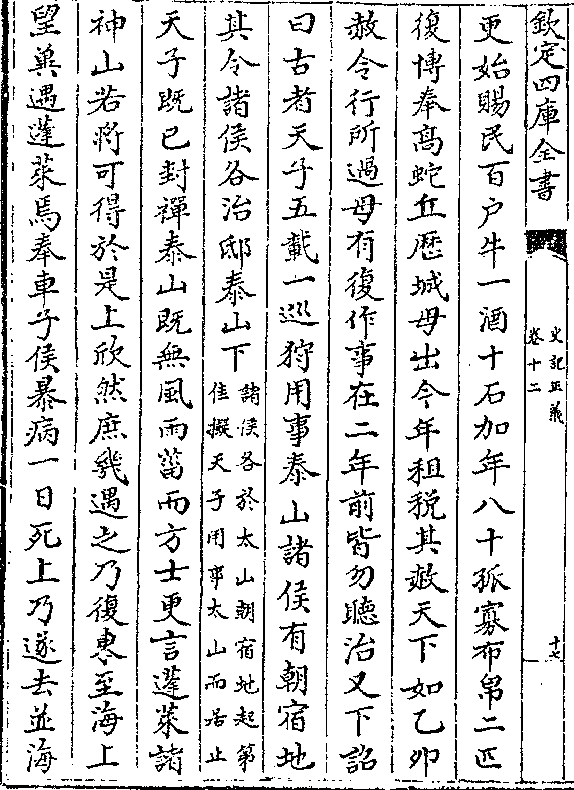 欽定四庫全書
史記正義
卷十二
十七
更始賜民百户牛一酒十石加年八十孤寡布帛二匹
復博奉髙蛇丘厯城毋出今年租税其赦天下如乙卯
赦令行所過毋有復作事在二年前皆勿聽治又下詔
曰古者天子五載一巡狩用事泰山諸侯有朝宿地
其令諸侯各治邸泰山下
諸侯各於太山朝宿地起第
住擬天子用事太山而居止
天子既已封禪泰山既無風雨菑而方士更言蓬萊諸
神山若將可得於是上欣然庶㡬遇之乃復東至海上
望兾遇蓬萊焉奉車子侯暴病一日死上乃遂去並海